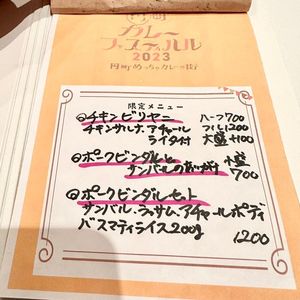 円町
カレー
フェスティバル
2023
円町めっちゃカレーの街
限定メニュー
◎チキンビリヤニ ハーフ700
チキンサルナ、アチャール フル1200
ライタ付 大盛+100
◎ポークビンダルと
サンバルのあいがけ 700
◎ポークビンダルセット
サンバル、ラッサム、アチャール ポディ
バスマティライス200g
1200